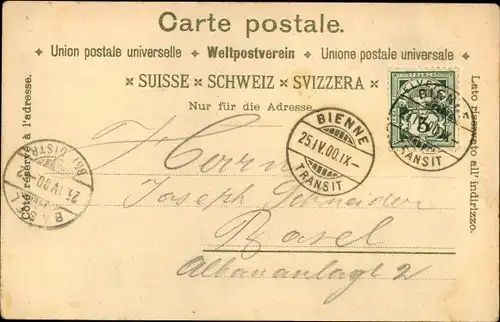 Carte postale.
Union postale universelle ✦ Weltpostverein ✦ Unione postale universale
SUISSE × SCHWEIZ × SVIZZERA
Nur für die Adresse.
Côté réservé à l'adresse.
Lato riservato all' indirizzo.
BIENNE
25.IV.00.IX-
TRANSIT
BIENNE
TRANSIT
25.IV.00
Herrn
Joseph Schneider
Basel
Albananlage 2